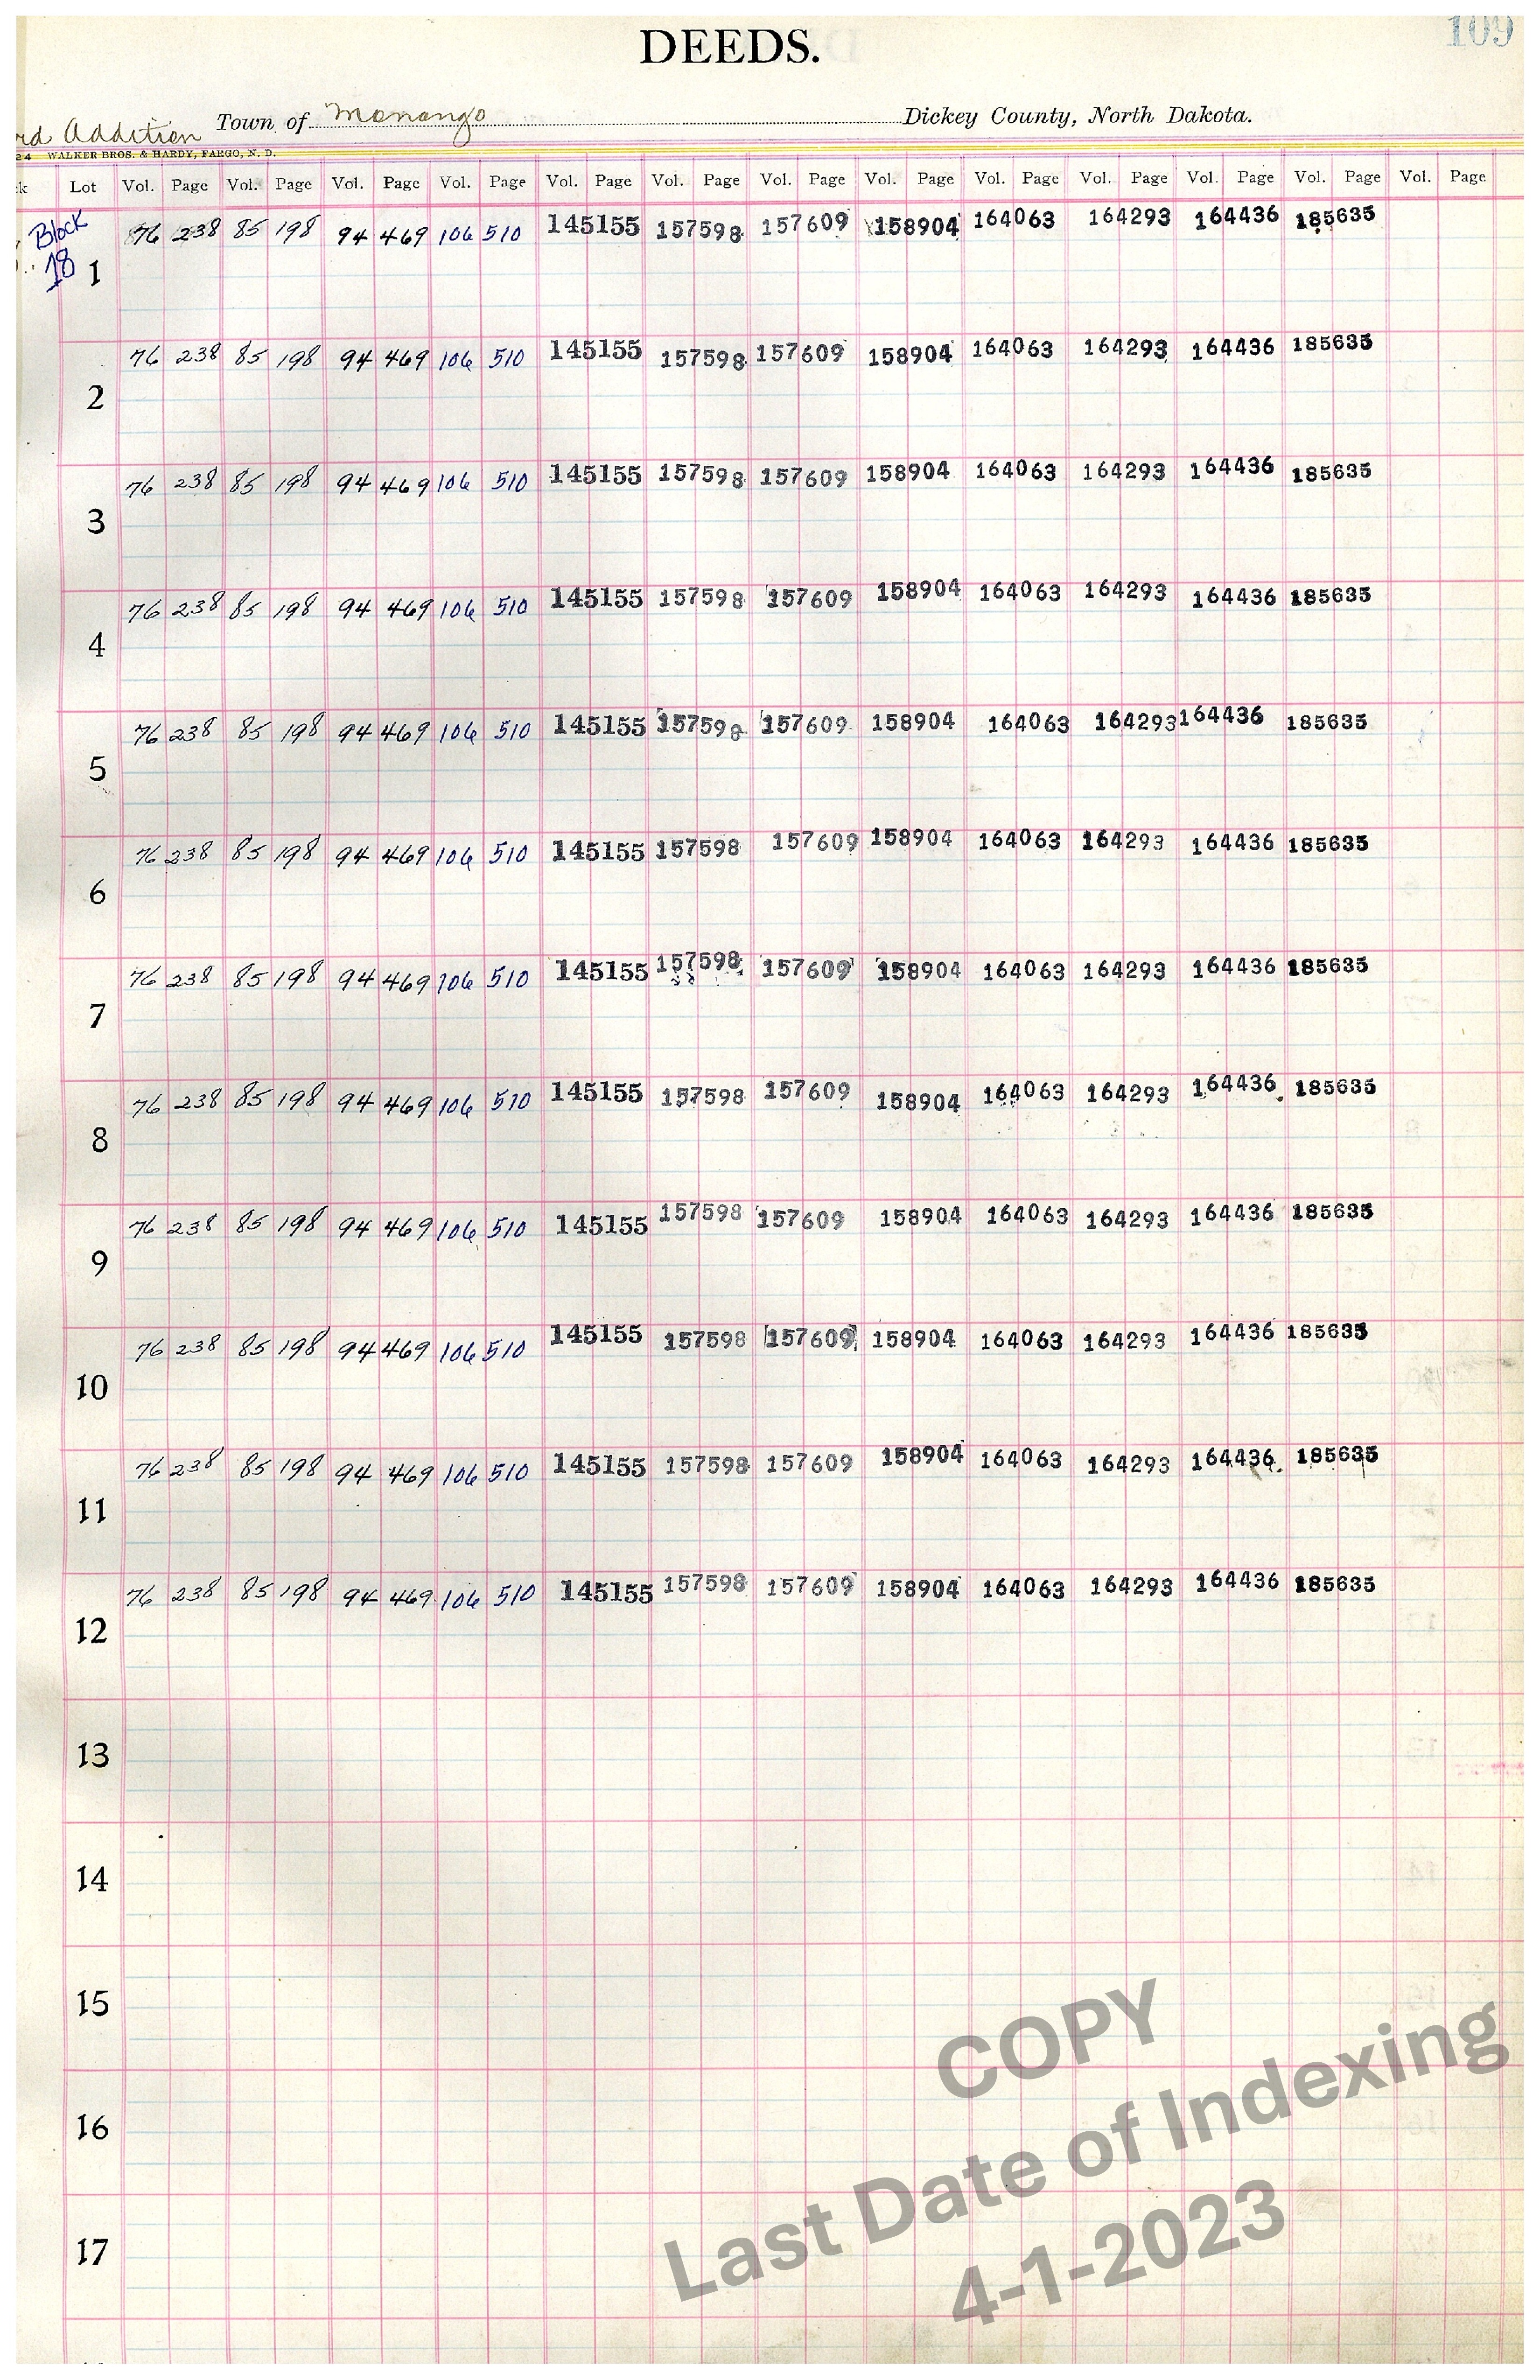 109
DEEDS.
rd Addition Town of Monango Dickey County, North Dakota.
24 WALKER BROS. & HARDY, FARGO, N. D.
k Lot Vol. Page Vol. Page Vol. Page Vol. Page Vol. Page Vol. Page Vol. Page Vol. Page Vol. Page Vol. Page Vol. Page Vol. Page Vol. Page
Block 76 238 85 198 94 469 106 510 145155 157598 157609 158904 164063 164293 164436 185635
18 1
76 238 85 198 94 469 106 510 145155 157598 157609 158904 164063 164293 164436 185635
2
76 238 85 198 94 469 106 510 145155 157598 157609 158904 164063 164293 164436 185635
3
76 238 85 198 94 469 106 510 145155 157598 157609 158904 164063 164293 164436 185635
4
76 238 85 198 94 469 106 510 145155 157598 157609 158904 164063 164293 164436 185635
5
76 238 85 198 94 469 106 510 145155 157598 157609 158904 164063 164293 164436 185635
6
76 238 85 198 94 469 106 510 145155 157598 157609 158904 164063 164293 164436 185635
7
76 238 85 198 94 469 106 510 145155 157598 157609 158904 164063 164293 164436 185635
8
76 238 85 198 94 469 106 510 145155 157598 157609 158904 164063 164293 164436 185635
9
76 238 85 198 94 469 106 510 145155 157598 157609 158904 164063 164293 164436 185635
10
76 238 85 198 94 469 106 510 145155 157598 157609 158904 164063 164293 164436 185635
11
76 238 85 198 94 469 106 510 145155 157598 157609 158904 164063 164293 164436 185635
12
13
14
15
16
17
COPY
Last Date of Indexing
4-1-2023